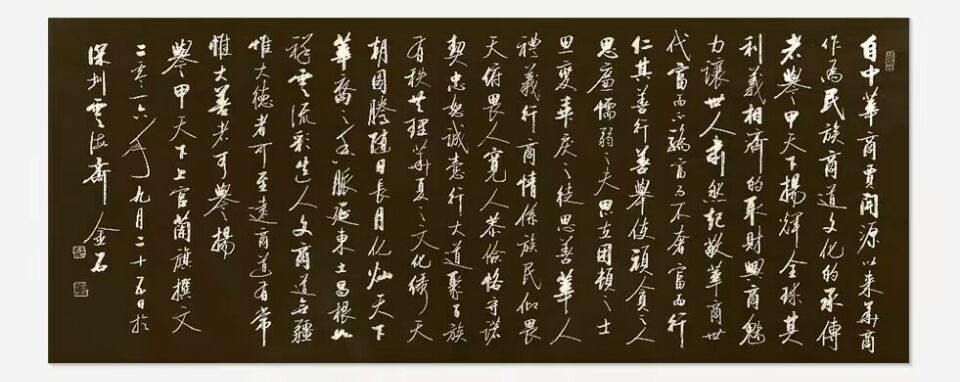 自中華商賈開源以来華商
作為民族商道文化的承傳
者譽甲天下揚輝全球其
利義相濟的取財興商魅
力讓世人肅然起敬華商世
代富而不驕富而不奢富而行
仁其善行善舉使頑貪之人
思廉懦弱之夫思立困頓之士
思變暴戾之徒思善華人
禮義行商情係族民仰畏
天俯畏人寬人恭儉恪守諾
契忠恕誠意行大道聚百族
有秩世理華夏之文化綉天
朝國騰隨日長月化灿天下
華裔之脈延東土昌根
程雲流彩生人文商道無疆
惟大德者可至遠商道有常
惟大善者可譽揚
譽甲天下上官蘭旗撰文
二零一六年九月二十五日於
深圳雲海齋金石